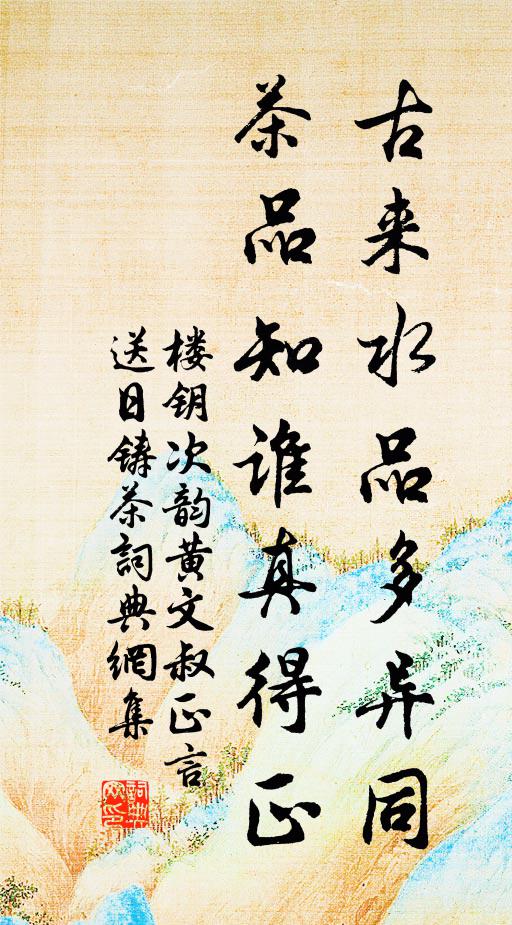 古来水品多异同
茶品知谁真得正
楼钥次韵黄文叔正言
送日铸茶詞典網集